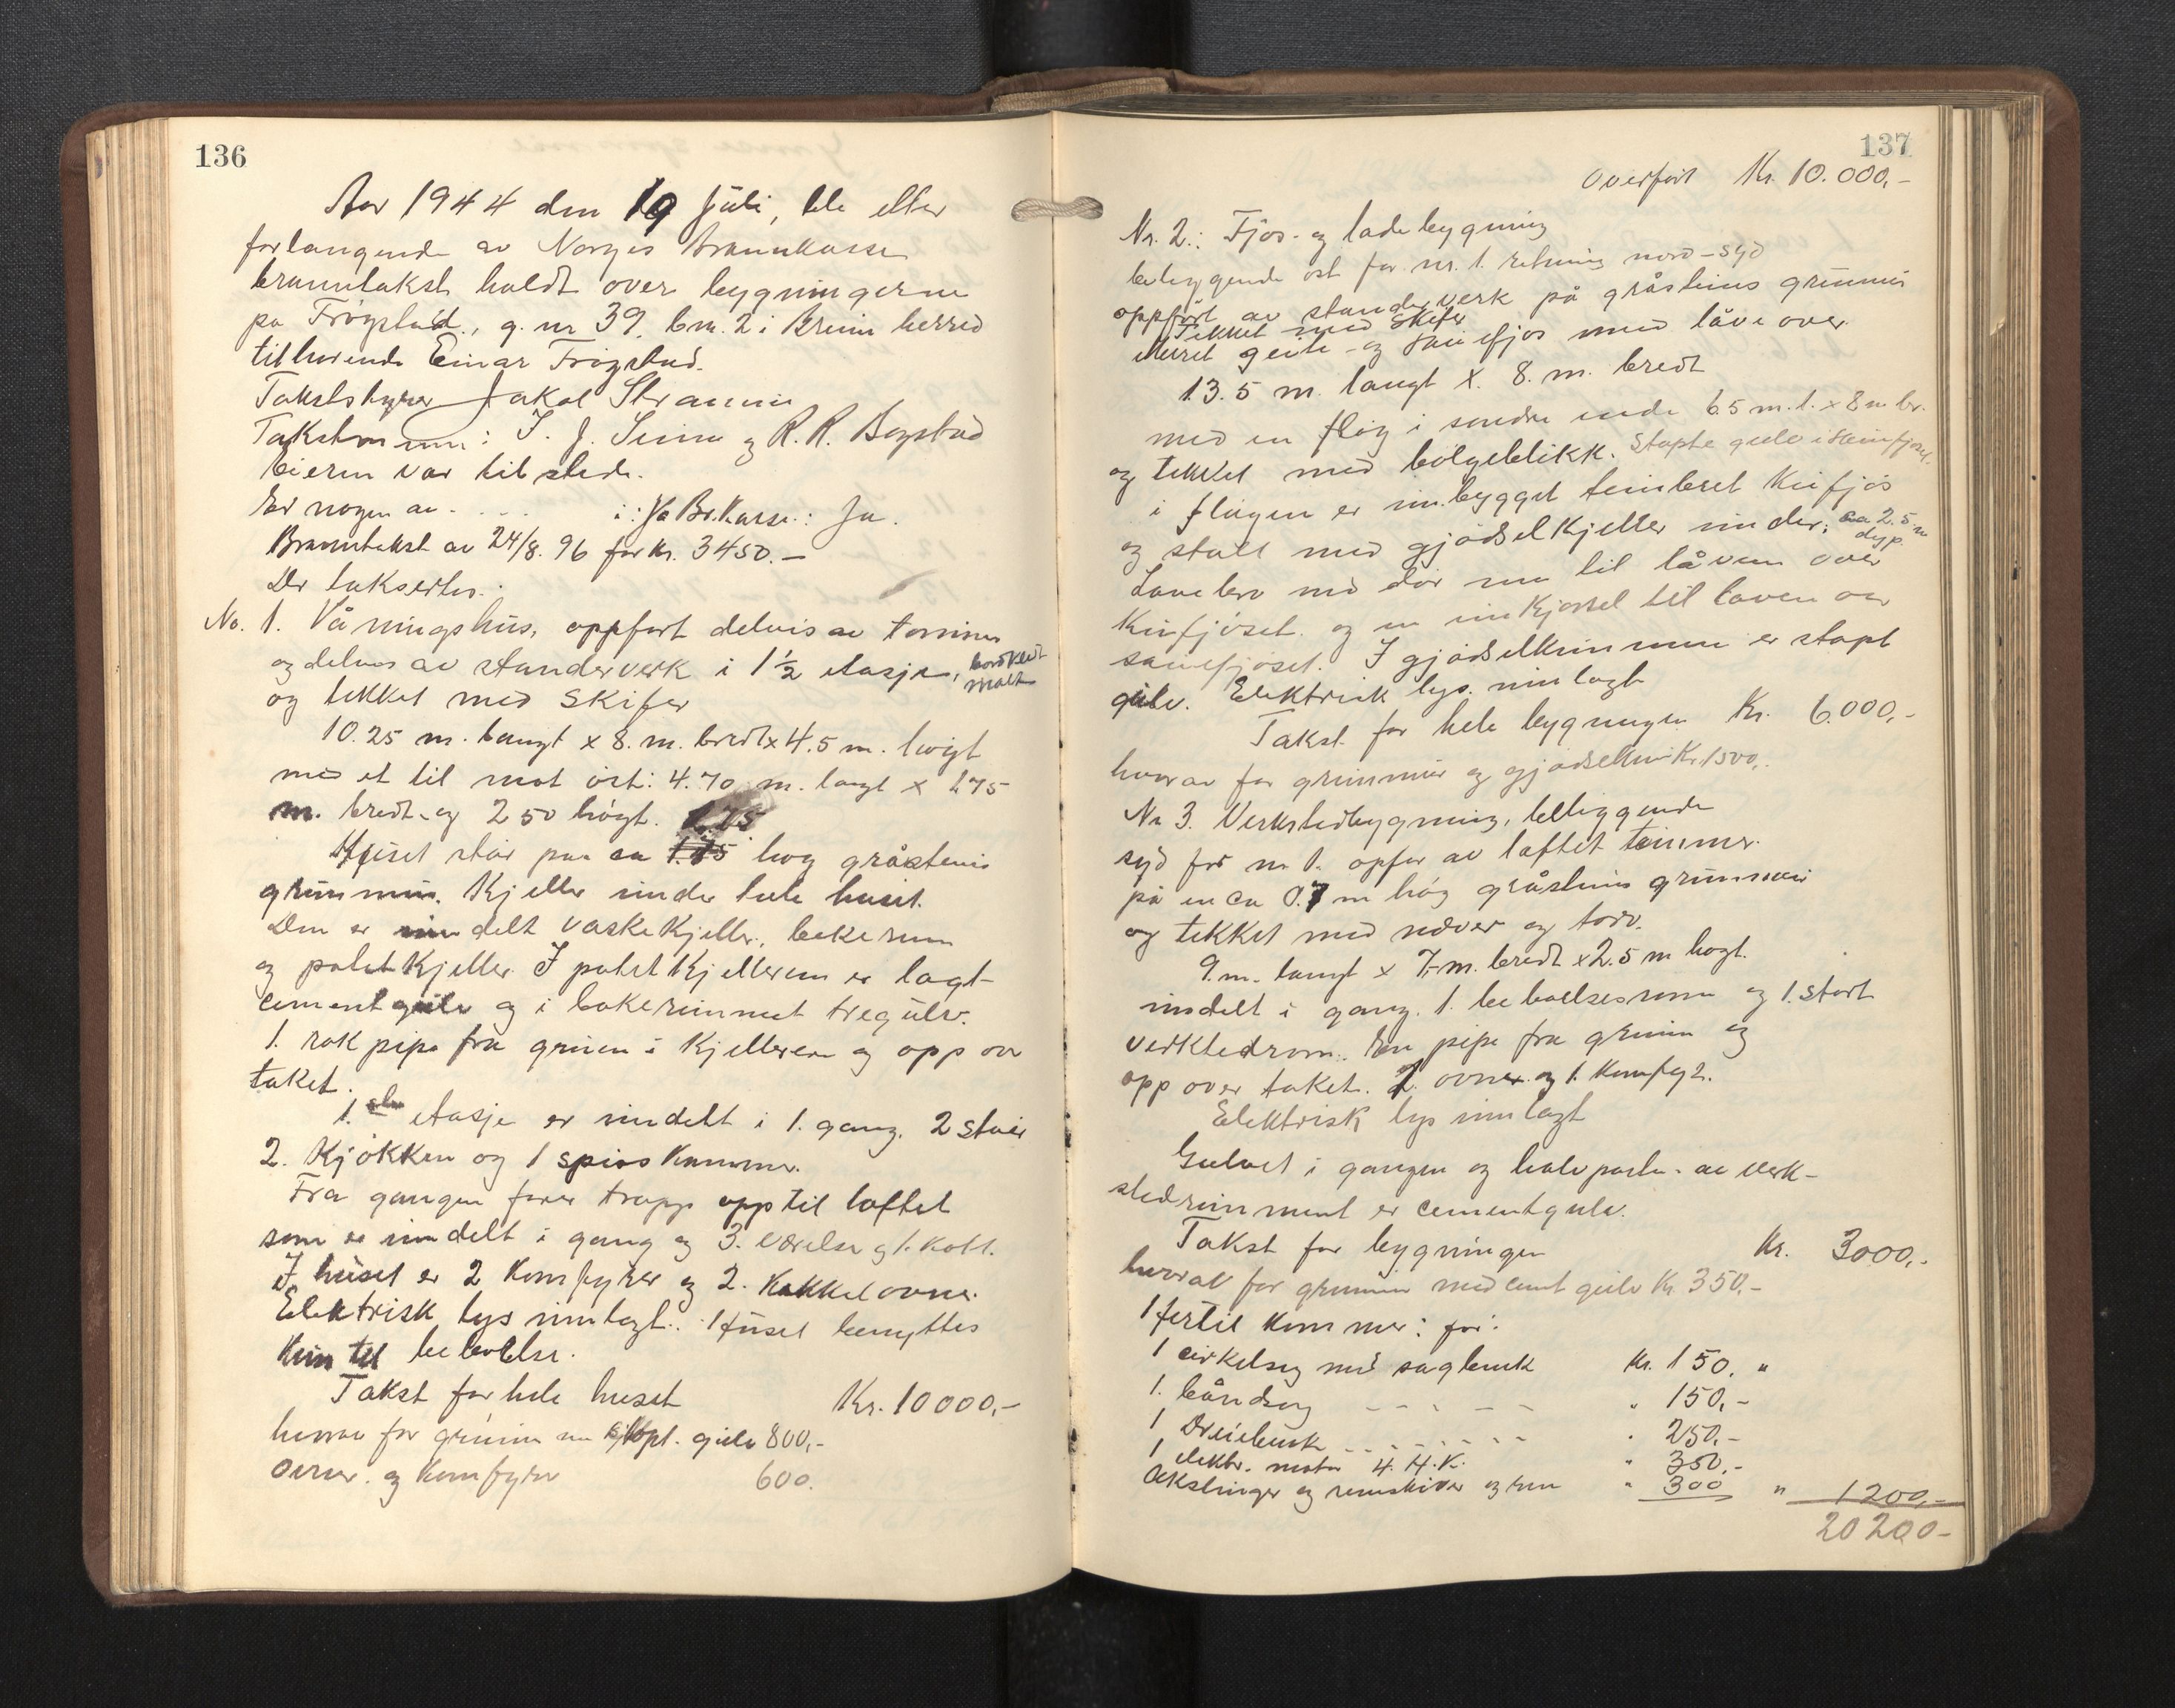 136
Aar 1944 den 19 juli, ble etter
forlangende av Norges Brannkasse
branntakst holdt over bygningerne
på Frøystad, g. nr 39. b.nr. 2 i Breim herred
tilhørende Einar Frøystad.
Takstbestyrer Jakob
Takstmenn: J. J. Seime og R. R. Bogstad
Eieren var tilstede.
Er nogen av - . . . i: Ja Br.kasse.: Ja.
Branntakst av 24/8. 96 for kr. 3450.—
Der taksertes:
No. 1. Våningshus, oppført delvis av tømmer
og delvis av standerverk i 1½ etasje, bordkledt
malt
og tekket med skifer
10.25 m. langt x 8. m. bredt x 4.5 m. høigt
med et til mot øst: 4.70 m. langt x 275
m. bredt og 250 høigt.
Huset står paa en høg gråstens
grunnmur. Kjeller under hele huset.
Den er inndelt vaskekjeller, bakerum
og potetkjeller. I potetkjelleren er lagt
cementgulv og i bakerummet tregulv.
1. røkpipe fra gruen i kjelleren og opp over
taket.
1. ste etasje er inndelt i 1. gang. 2 stuer
2. kjøkken og 1 spisskammer.
Fra gangen fører trapp opp til loftet
som er inndelt i gang og 3. værelser og 1. kott.
I huset er 2 komfyrer og 2. kakkelovner.
Elektrisk lys innlagt. Huset benyttes
kun til beboelse.
Takst for hele huset Kr. 10000,-
hvorav for grunnmur støpt. gulv 800,-
Ovner. og komfyrer 600.
137
Overført Kr. 10.000,-
Nr. 2.: Fjøs- og ladebygning
beliggende øst for nr. 1. retning nord-syd
oppført av standerverk på gråstens grunnmur
Tekket med skifer
Muret geite- og sauefjøs med låve over
13.5 m. langt x. 8. m. bredt
med en fløy i søndre ende 6.5 m. l. x 8 m br.
og tekket med bølgeblikk. Støpte gulv i sauefjøset.
i fløyen er innbygget tømbret kufjøs
og stall med gjødselkjeller under: ca 2.5 m
dyp.
Lavebro med dør inn til låven over
kufjøset. og en innkjørsel til låven over
sauefjøset. I gjødselrummen er støpt
gulv. Elektrisk lys. innlagt
Takst. for hele bygningen Kr. 6.000,-
hvorav for grunnmur og gjødselrum Kr. 1500,-
Nr 3. Verkstedbygning, beliggende
syd for nr 1. opført av laftet tømmer.
på en ca 0.7 m høg gråstens grunnmur
og tekket med næver og torv.
9. m. langt x 7,-m. bredt x 2.5 m høgt.
inndelt i gang. 1. beboelsesrum og 1. stort
verkstedrom. En pipe fra grunn og
opp over taket. 2. ovner og 1. komfyr.
Elektrisk lys innlagt
Gulvet i gangen og halvparten av verk-
stedrummet er cementgulv.
Takst for bygningen Kr. 3000,-
hvorav for grunnmur med cemt gulv Kr. 350,-
Hertil kommer: for:
1 cirkelsag med sagbenk Kr. 150. "
1. båndsag - - - - - " 150,-
1 Dreiebenk - - - - - - " 250,-
1 elektr. motor 4. H.K. " 350,-
Akslinger og remskiver og rem " 300 " 1200,-
20200-